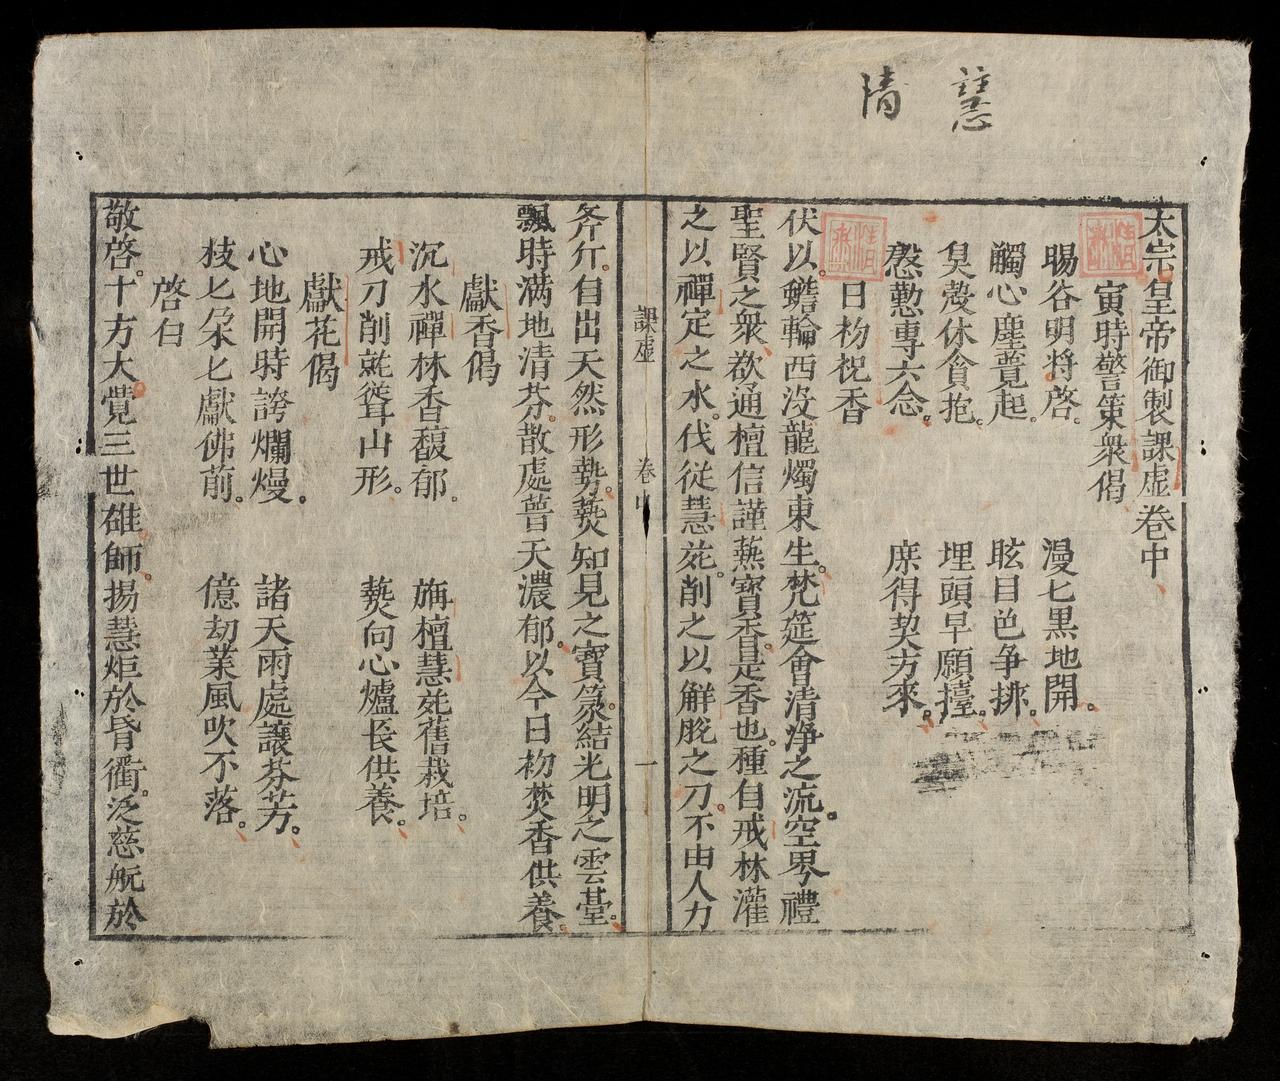 慧
情
太宗皇帝御製課虛卷中
寅時警策衆偈
暘谷明將啓。 漫匕黑地開。
觸心塵蔓起。 眩目色爭排。
臭殼休貪抱。 埋頭早願擡。
慇懃專六念。 庶得契方來。
日初祝香
伏以蟾輪西沒龍燭東生。梵筵會清淨之流空界禮
聖賢之衆欲通檀信謹爇寶香。是香也。種自戒林灌
之以禪定之水。伐從慧苑。削之以解脫之刀。不由人力
課虛 卷中 一
斧斤。自出天然形勢。爇知見之寶篆。結光明之雲臺。
飄時滿地清芬。散處普天濃郁。以今日初焚香供養。
獻香偈
沉水禪林香馥郁。 旃檀慧苑舊栽培。
戒刀削就聳山形。 爇向心爐長供養。
獻花偈
心地開時誇爛熳。 諸天雨處讓芬芳。
枝匕朶匕獻佛前。 億劫業風吹不落。
啓白
敬啓。十方大覺三世雄師。揚慧炬於昏衢。泛慈航於